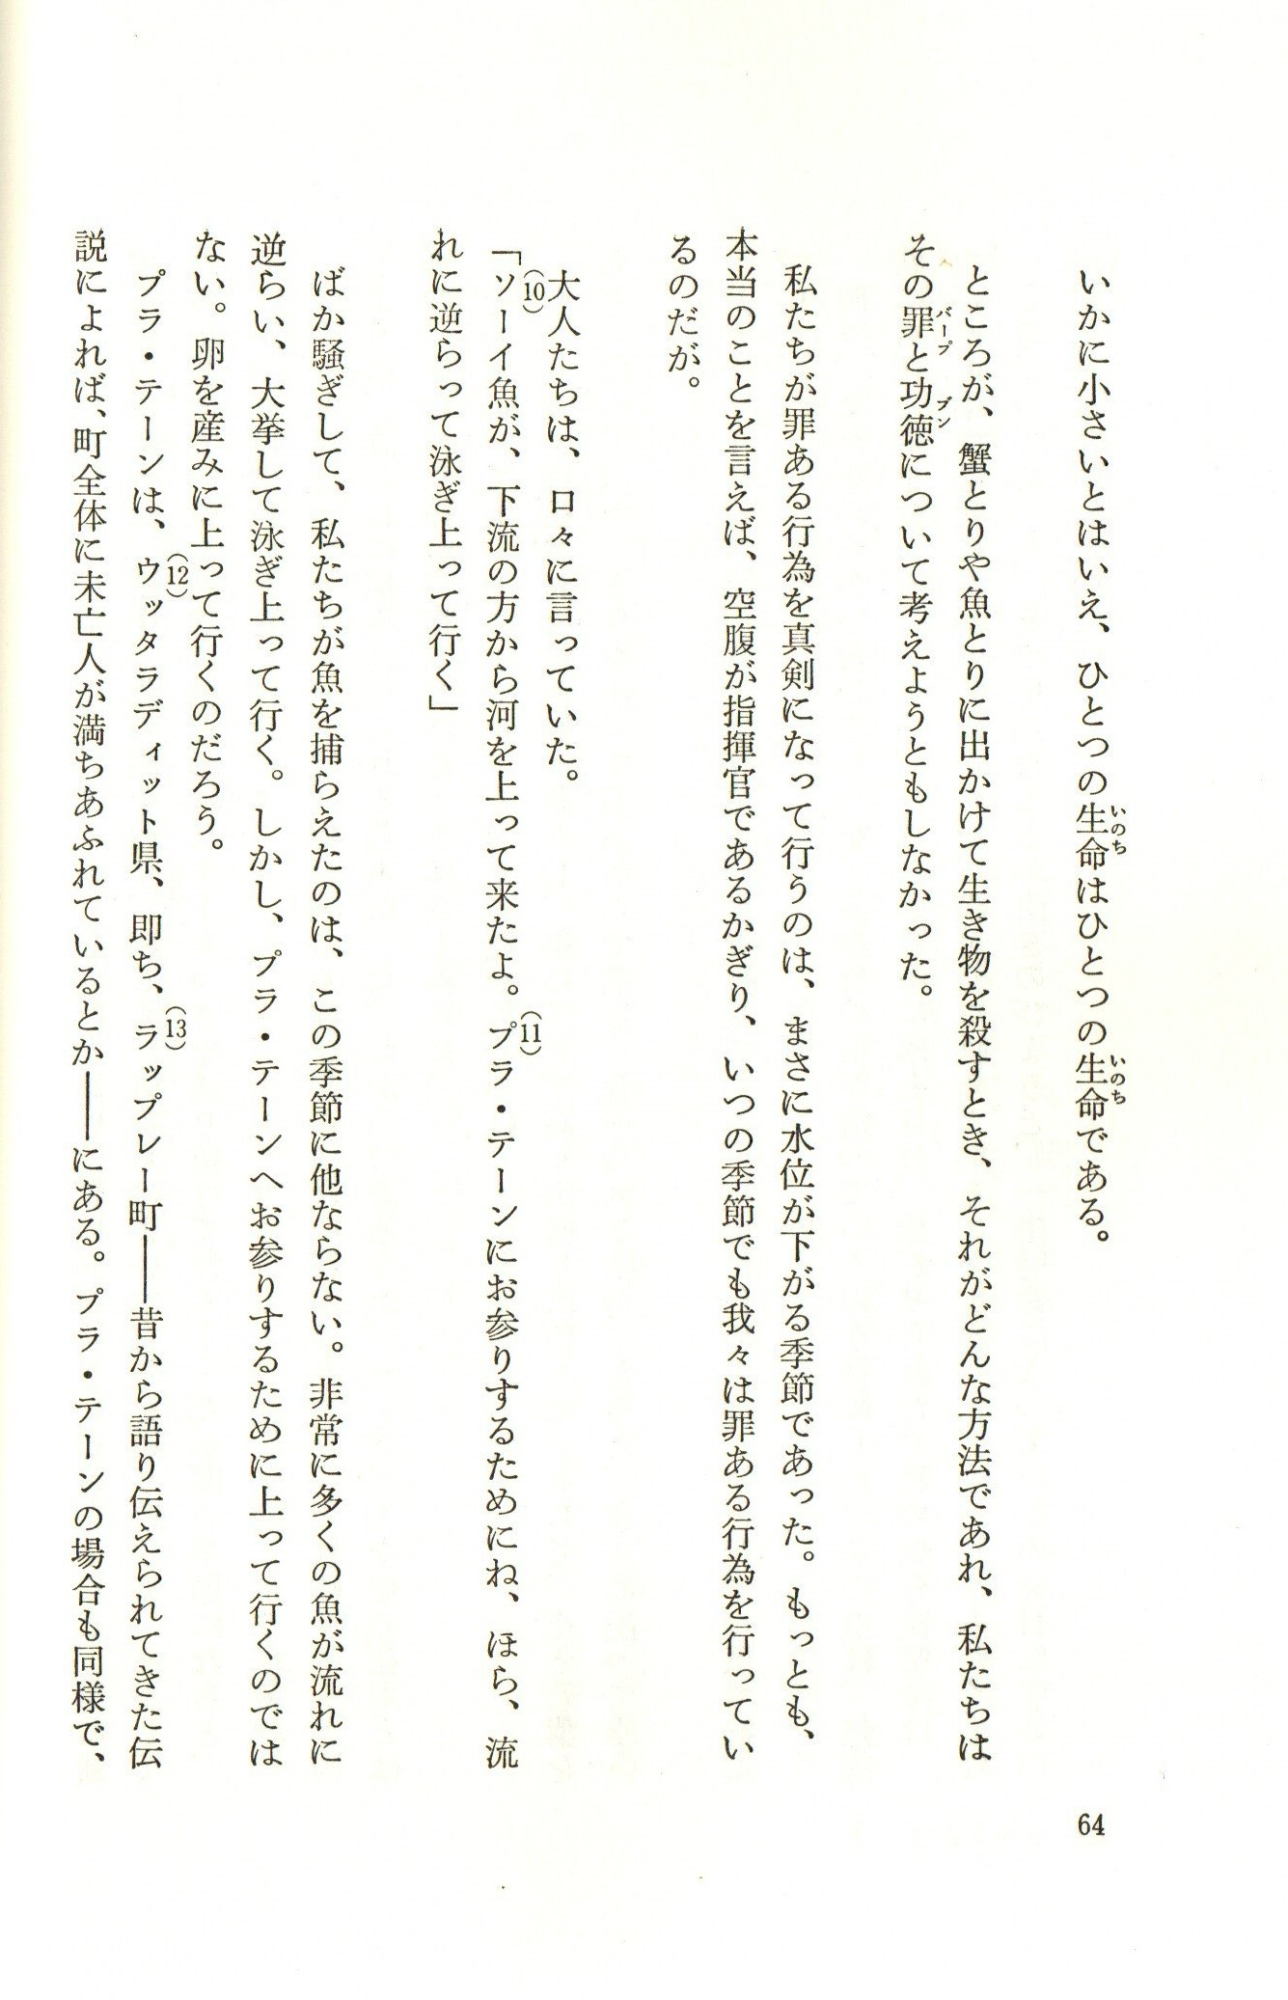 いかに小さいとはいえ、ひとつの生命はひとつの生命である。
いのち
いのち
ところが、蟹とりや魚とりに出かけて生き物を殺すとき、それがどんな方法であれ、私たちは
その罪と功徳について考えようともしなかった。
バープ
ブン
私たちが罪ある行為を真剣になって行うのは、まさに水位が下がる季節であった。もっとも、
本当のことを言えば、空腹が指揮官であるかぎり、いつの季節でも我々は罪ある行為を行ってい
るのだが。
大人たちは、口々に言っていた。
「ソーイ魚が、下流の方から河を上って来たよ。プラ・テーンにお参りするためにね、ほら、流
(10)
(11)
れに逆らって泳ぎ上って行く」
ばか騒ぎして、私たちが魚を捕らえたのは、この季節に他ならない。非常に多くの魚が流れに
逆らい、大挙して泳ぎ上って行く。しかし、プラ・テーンへお参りするために上って行くのでは
ない。卵を産みに上って行くのだろう。
プラ・テーンは、ウッタラディット県、即ち、ラップレー町――昔から語り伝えられてきた伝
(12)
(13)
説によれば、町全体に未亡人が満ちあふれているとか――にある。プラ・テーンの場合も同様で、
64